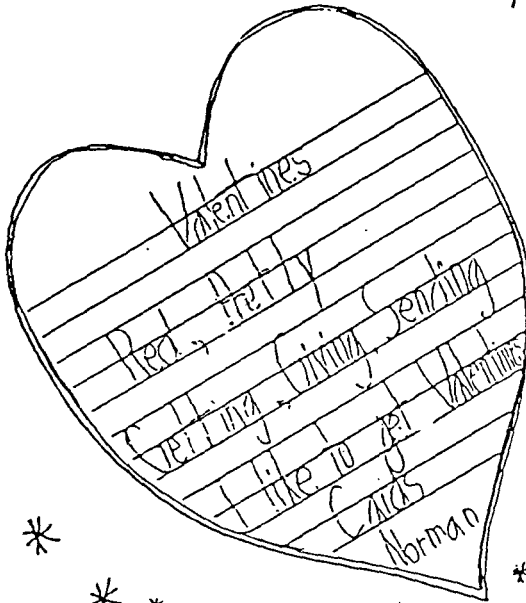 Valentines
Red, Pretty
Getting, Giving, Sending
I like to get Valentine
Cards
Norman